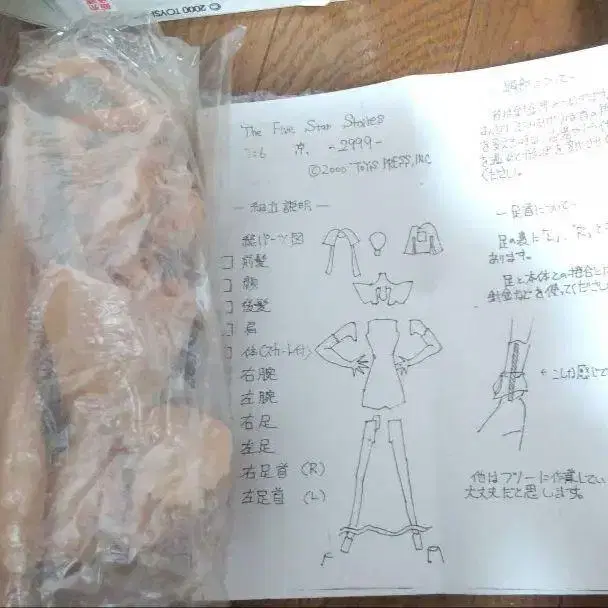 © 2000 TOYS
The Five Star Stories
京 -2999-
©2000 TOYS PRESS, INC
— 組立説明 —
総パーツ図
□ 前髪
□ 顔
□ 後髪
□ 肩
□ 体(スカート付)
右腕
左腕
右足
左足
右足首 (R)
左足首 (L)
頭部について—
ください。
— 足首について—
足の裏に「L」、「R」と
あります。
足と本体との接合に
針金などを使ってください
←こんな感じで
他はフリーに作業してい
大丈夫だと思います。